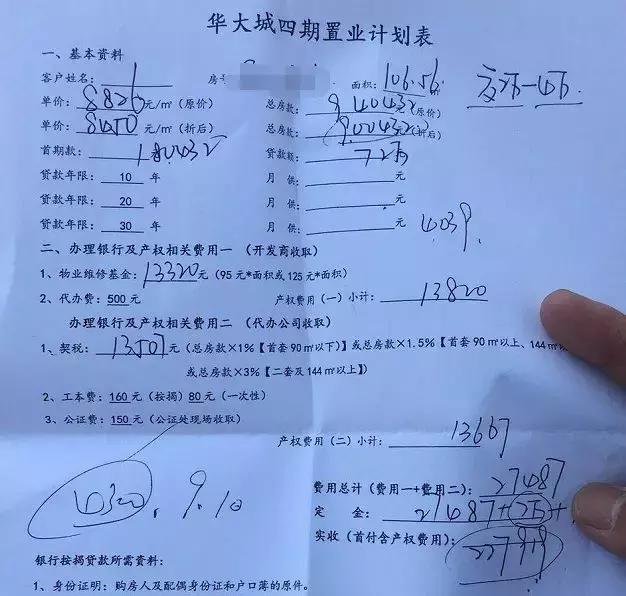 华大城四期置业计划表
一、基本资料
客户姓名: 房号 面积: 106.56
交2万—4万.
单价: 8826 元/㎡ (原价) 总房款: 940432 (原价)
单价: 8450 元/㎡ (折后) 总房款: 900432 (折后)
首期款: 180432 贷款额: 72万
贷款年限: 10 年 月 供: 元
贷款年限: 20 年 月 供: 元
贷款年限: 30 年 月 供: 元
4039.
二、办理银行及产权相关费用一 (开发商收取)
1、物业维修基金: 13320 元 (95元*面积或125元*面积)
2、代办费: 500元 产权费用(一)小计: 13820
办理银行及产权相关费用二 (代办公司收取)
1、契税: 13507 元 (总房款×1%【首套90㎡以下】) 或总房款×1.5%【首套90㎡以上、144㎡以
或总房款×3%【二套及144㎡以上】)
2、工本费: 160元 (按揭) 80元 (一次性)
3、公证费: 150元 (公证处现场收取)
产权费用(二)小计: 13667
费用总计 (费用一+费用二): 27487
定 金: 27487+2万+
9.10
实收 (首付含产权费用):
银行按揭贷款所需资料:
1、身份证明: 购房人及配偶身份证和户口薄的原件。